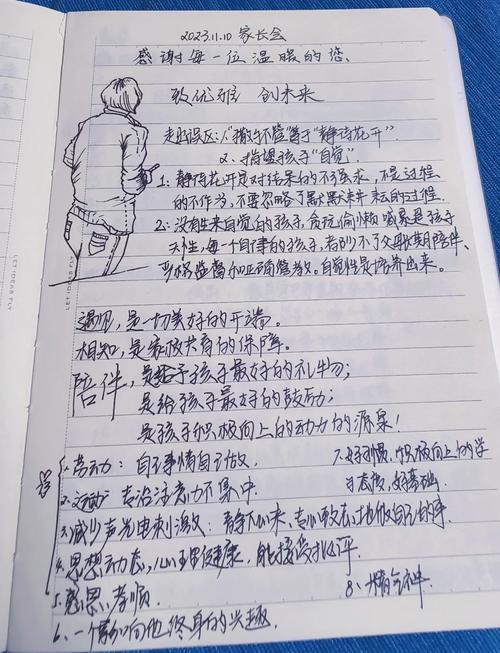 2023.11.10 家长会
感谢每一位温暖的您、
致优雅 创未来
走出误区：1."撒手不管"等于"静待花开".
2、指望孩子"自觉".
1：静待花开是对结果的不强求，不是过程
的不作为，不要忽略了默默耕耘的过程.
2：没有生来自觉的孩子，贪玩偷懒或是孩子
天生，每一个自律的孩子，都少不了父母长期陪伴、
严格监督和正确管教。自觉性是培养出来。
遇见，是一切美好的开端。
相知，是家校共育的保障。
陪伴，是给予孩子最好的礼物；
是给孩子最好的鼓励；
是孩子积极向上的动力的源泉！
1.劳动：自己事情自己做.
7.好习惯，积极向上的学
习态度，好基础.
2.运动 专治注意力不集中.
3.减少声光电刺激：静下心来、专心致志地做自己的事.
4.思想动态，心理健康，能接受批评.
5.感恩、孝顺.
8、精气神
6、一个影响他终身的兴趣.
LET·IDEAS·FLY